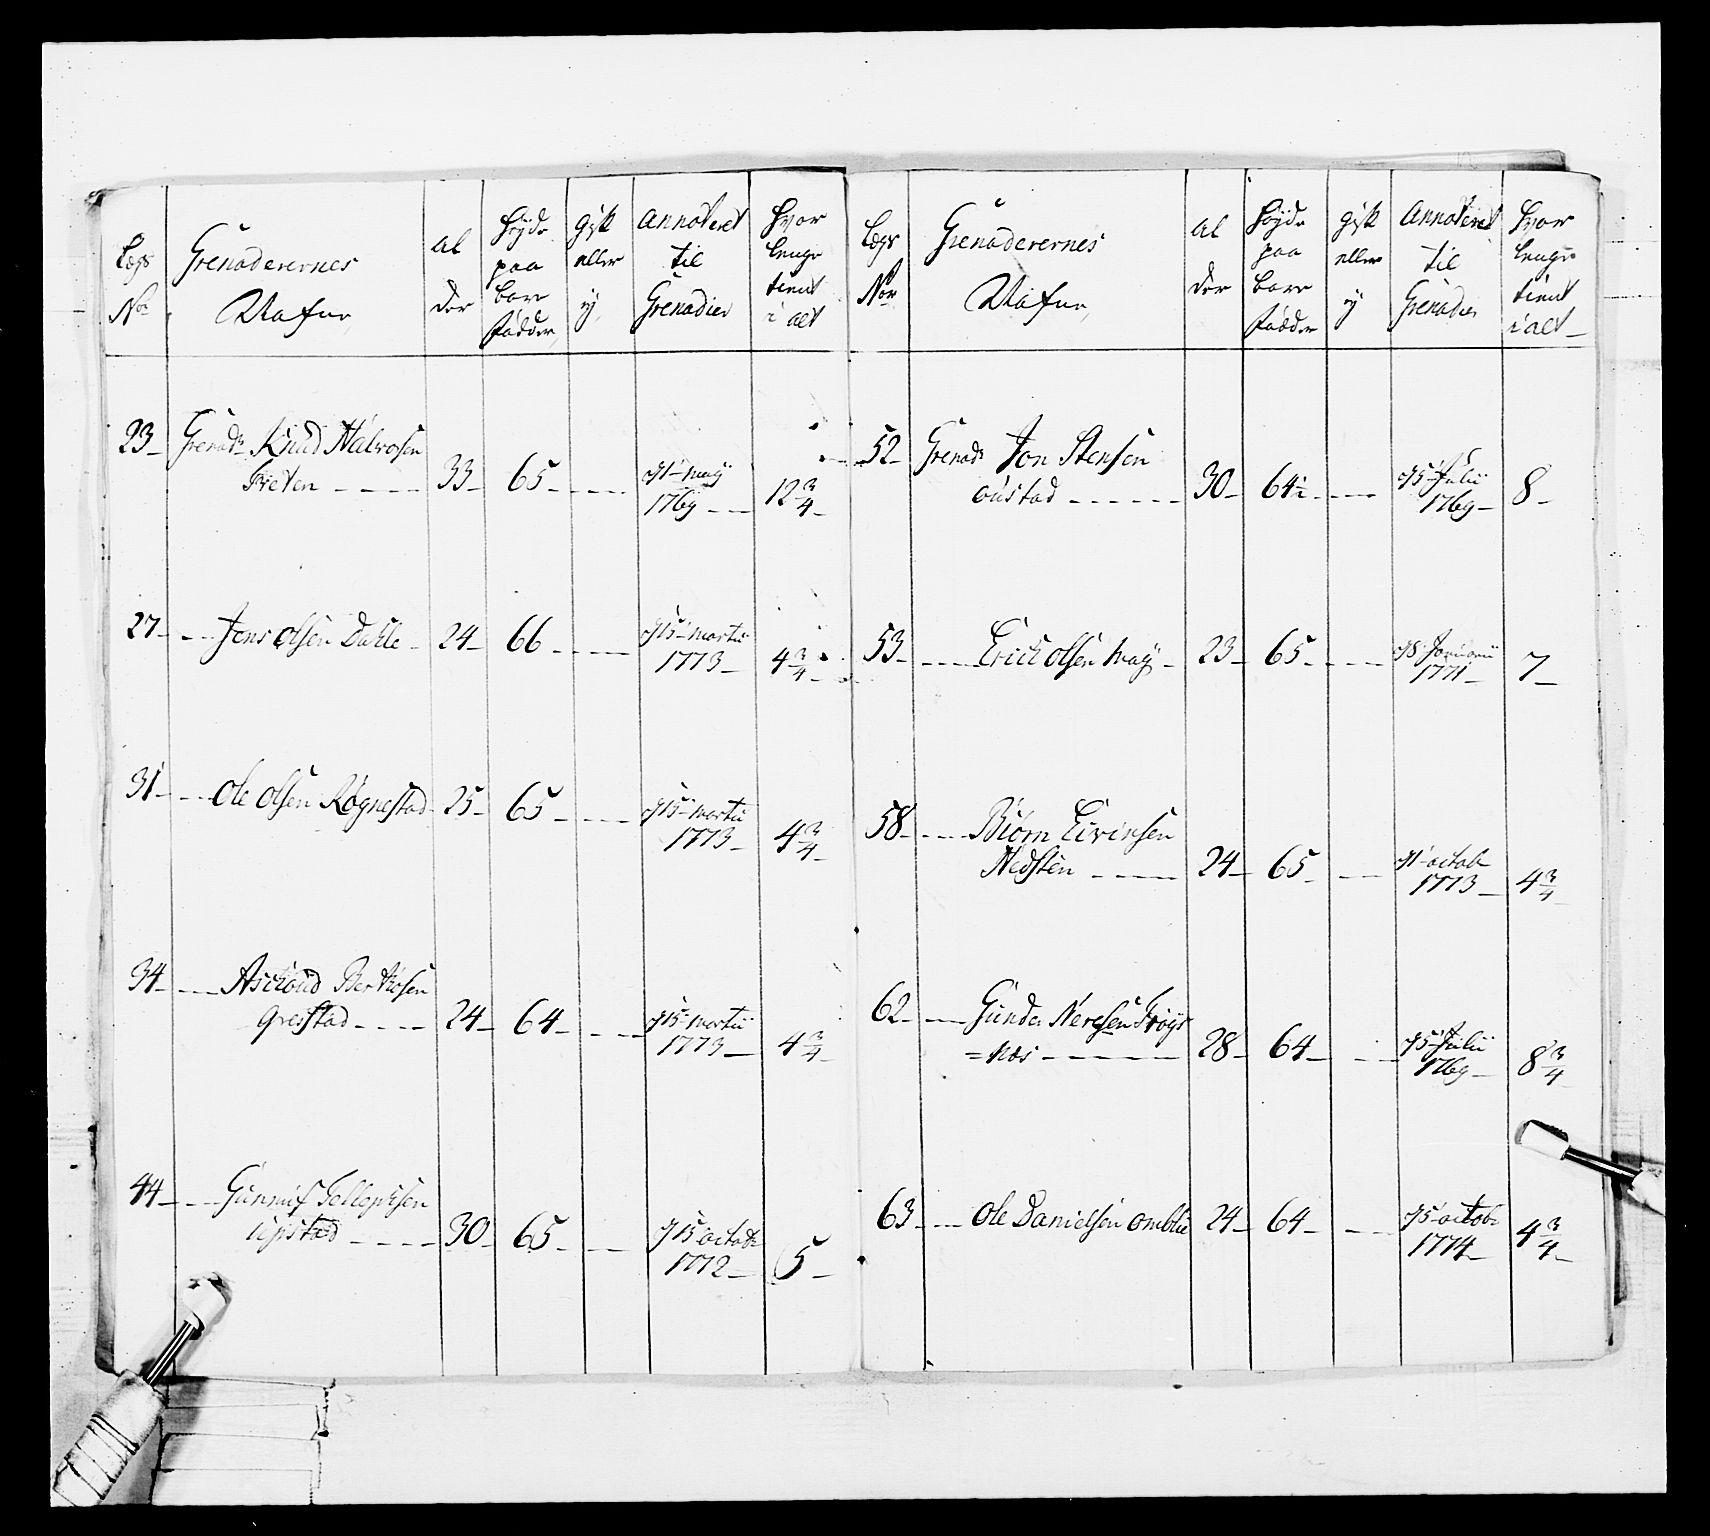 Lægs
No
Grenaderernes
Nafne
Al
der
Høyde
paa
bare
fødder
gift
eller
ey
annoteret
til
Grenadier
hvor
lenge
tient
i alt
23 Grenad. Knud Halvosen
33 65 d 1 May
1769 12 3/4
27 Jens Olsen Dahle 24 66 d 15 Martii
1773 4 3/4
31 Ole Olsen Røgnestad 25 65 d 15 Martii
1773 4 3/4
34 Aschoud
Greistad 24 64 d 15 Martii
1773 4 3/4
44 Gunnuf Tellefsen
30 65 d 15 octob
1772 5
Lægs
Nor
Grenaderernes
Nafne
Al
der
Høyde
paa
bare
fødder
gift
eller
ey
annoteret
til
Grenadier
hvor
lenge
tient
i alt
52 Grenad Jon Stensen
oustad 30 64½ d 5 Julii
1769 8
53 Erich Olsen May 23 65 d 8 Januarii
1771 7
58 Biørn Eivinsen
Nedsten 24 65 d 1 octob
1773 4 3/4
62 Gunder Neresen
= næs 28 64 d 5 Julii
1769 8 3/4
63 Ole Danielsen omblie 24 64 d 5 octob
1774 4 3/4